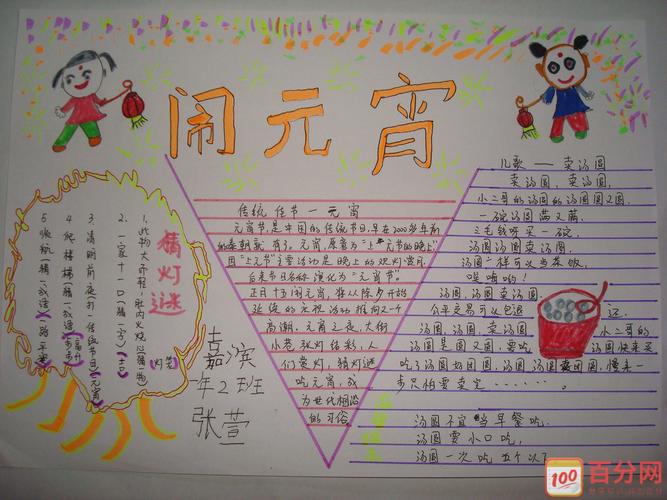 闹元宵
猜灯谜
1. 此物大奇
2. 一家十一口(猜一字)(吉)
3. 清明前夜(打一传统节日)(元宵)
4. 爬楼梯(猜一成语)(步步高升)
5
嘉滨
一年2班
张萱
传统佳节—元宵
元宵节,是中国的传统节日,早在2000多年前
的秦朝就有了。元宵,原意为“上元节的晚上”
因“上元节”主要活动是晚上的观灯赏月
后来节日名称演化为“元宵节”
正月十五闹元宵,将从除夕开始
延续的庆祝活动推向又一个
高潮。元宵之夜,大街
小巷,张灯结彩,人
们赏灯,猜灯谜
吃元宵,成
为世代相沿
的习俗
儿歌——卖汤圆
卖汤圆,卖汤圆,
小二哥的汤圆的汤圆圆又圆
一碗汤圆满又满
三毛钱呀买一碗,
汤圆汤圆卖汤圆
汤圆一样可以当茶饭,
哎嗨哟!
汤圆,汤圆卖汤圆
公平交易可以包退还。
汤圆,汤圆,卖汤圆 小二哥的
汤圆是圆又圆,要吃汤圆快来买
吃了汤圆好团圆,汤圆汤圆卖汤圆,慢来一
步只怕要卖完………
汤圆不宜当早餐吃,
汤圆要小口吃,
汤圆一次吃五个以下
100
百分网